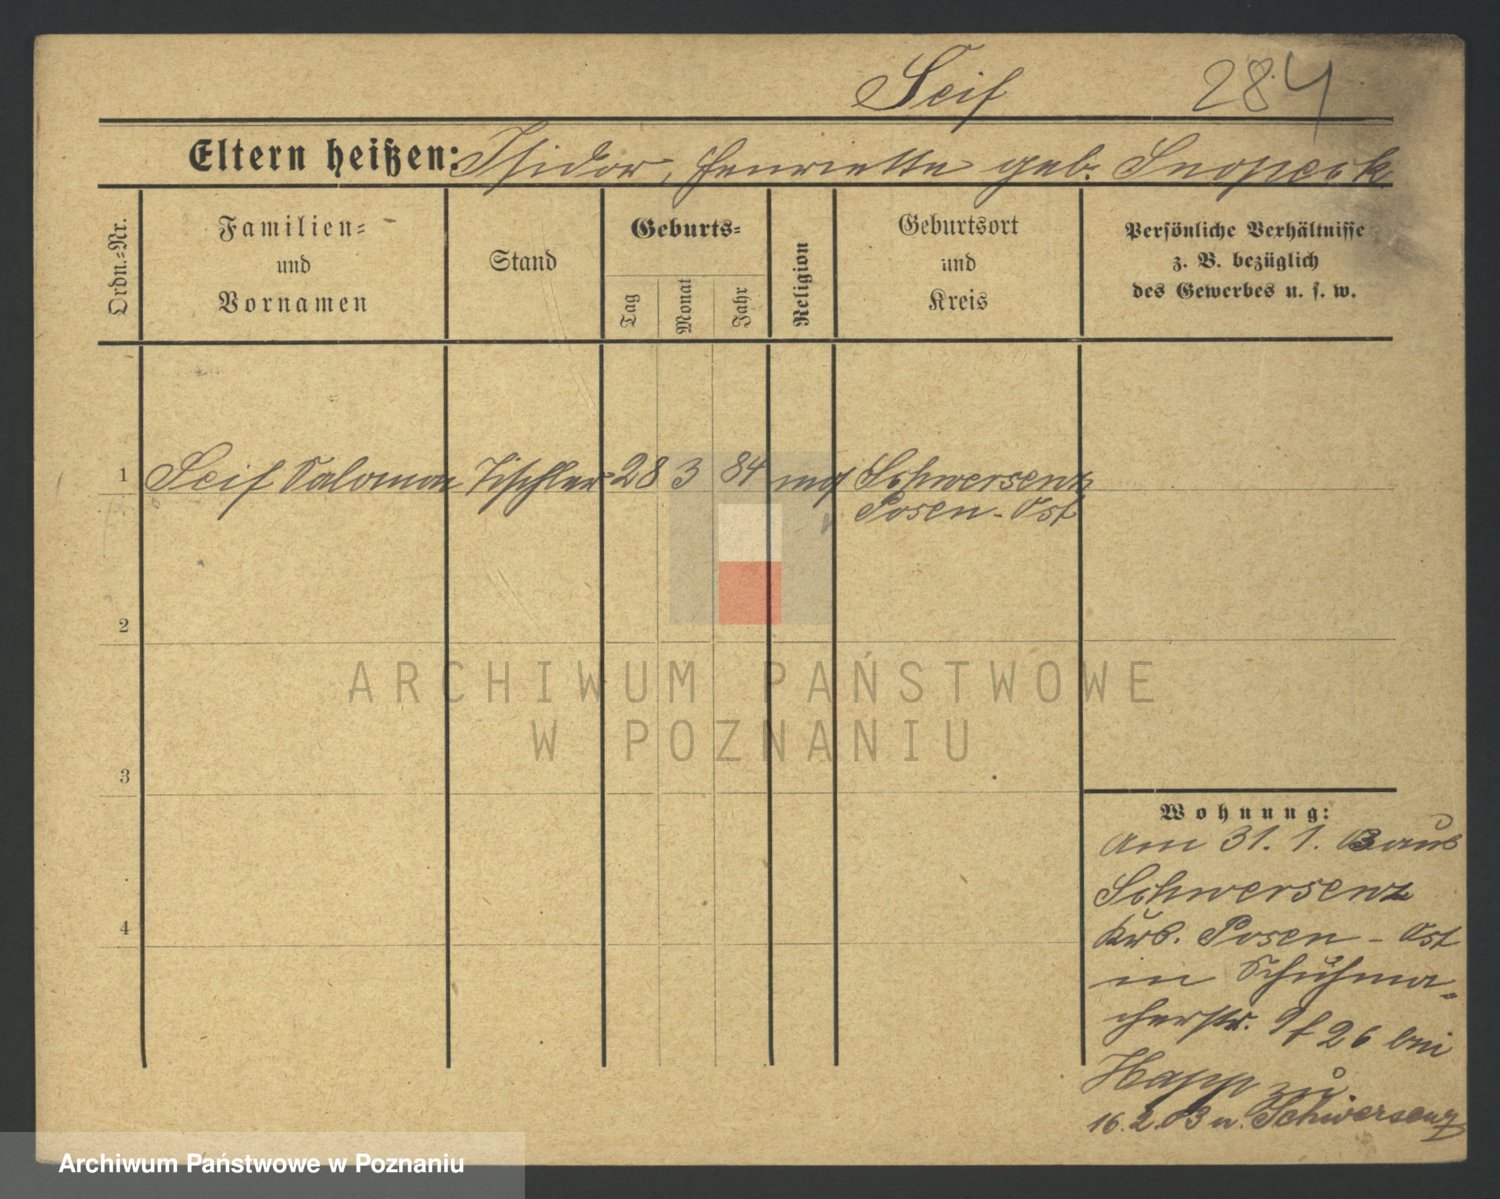 Seif 284
Eltern heißen: Isidor, Henriette geb. Snopeck
Ordn.=Nr.
Familien=
und
Vornamen
Stand
Geburts=
Tag
Monat
Jahr
Religion
Geburtsort
und
Kreis
Persönliche Verhältnisse
z. B. bezüglich
des Gewerbes u. s. w.
1 Seif Salomon Tischler 28 3 84 Schwersenz
Posen-Ost
2
3
4
Wohnung:
Am 31. 1. 03 aus
Schwersenz
Krs. Posen-Ost
in Schuhma-
cherstr. 26 bei
Happ zu
16.2.03 n. Schwersenz
ARCHIWUM PAŃSTWOWE
W POZNANIU
Archiwum Państwowe w Poznaniu